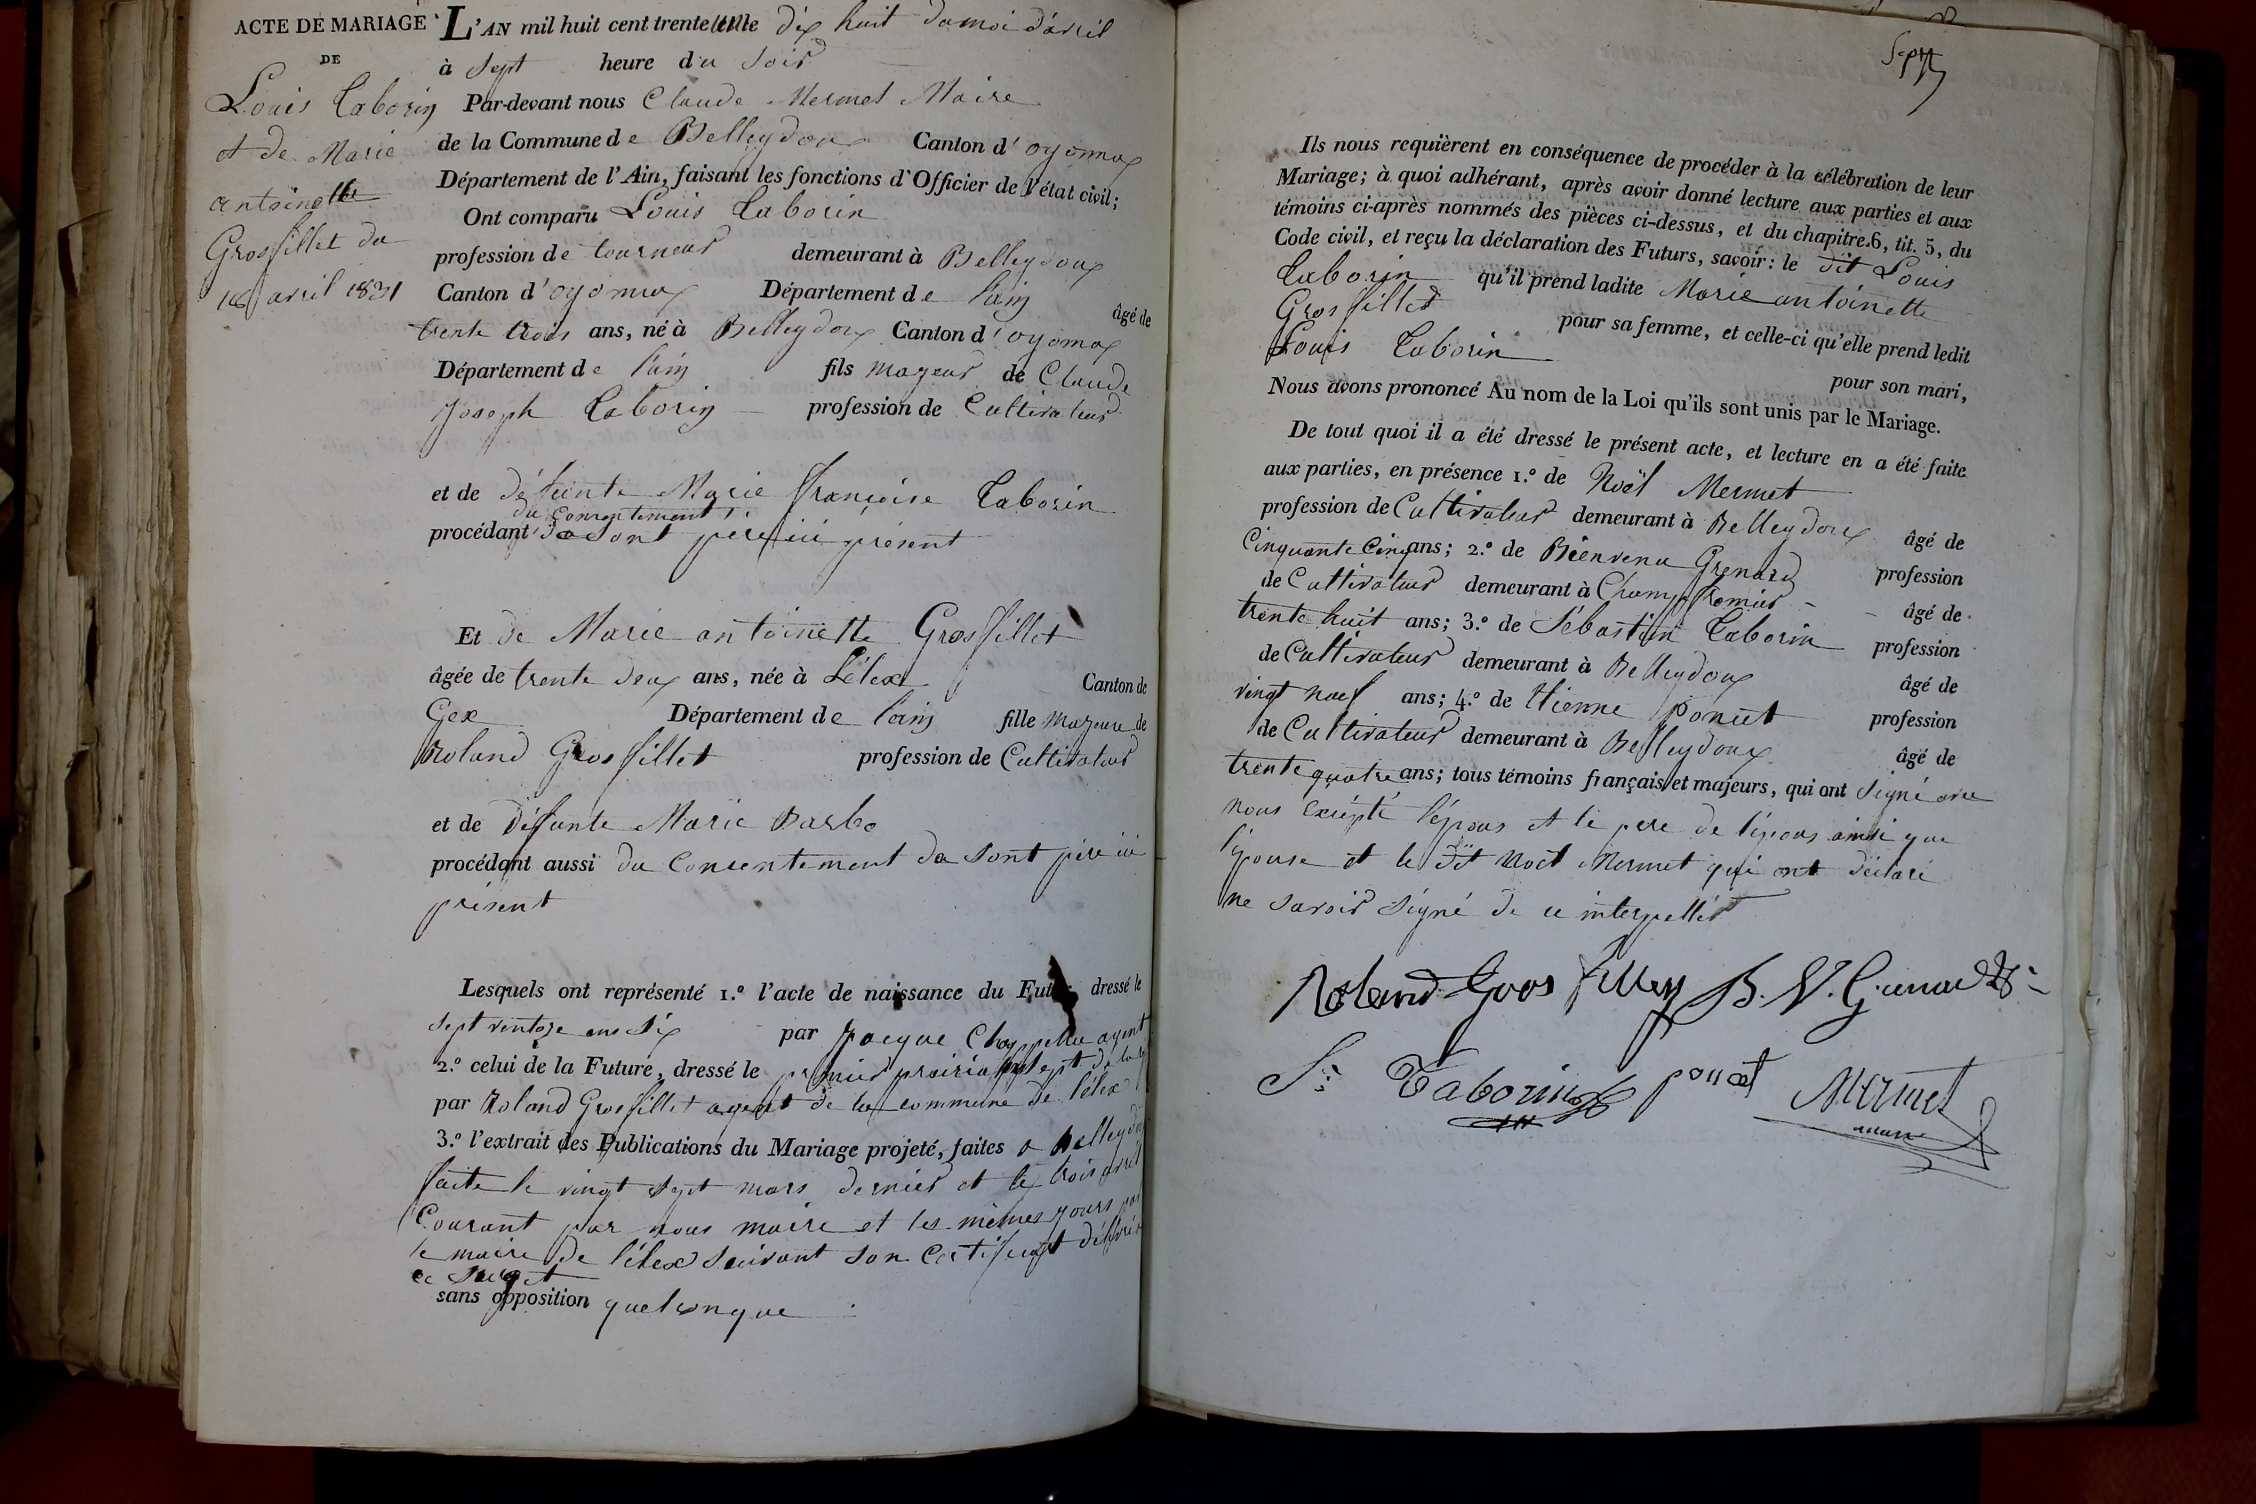 ACTE DE MARIAGE
DE
Louis Taborin
et de Marie
antoinette
Grosfillet du
18 avril 1831
L'AN mil huit cent trente dix huit du moi d'avril
à sept heure du soir
Par-devant nous Claude Mermet Maire
de la Commune de Belleydoux Canton d'oyonnax
Département de l'Ain, faisant les fonctions d'Officier de l'état civil;
Ont comparu Louis Taborin
profession de tourneur demeurant à Belleydoux
Canton d'oyonnax Département de l'ain âgé de
trente trois ans, né à Belleydoux Canton d'oyonnax
Département de l'ain fils mageur de Claude
Joseph Taborin profession de Cultivateur
et de défunte Marie françoise Taborin
du consentement
procédant de sont père ici présent
Et de Marie antoinette Grosfillet
âgée de trente deux ans, née à Lélex Canton de
Gex Département de l'ain fille mageure de
Roland Grosfillet profession de Cultivateur
et de défunte Marie Barbe
procédant aussi du Consentement de sont père ici
présent
Lesquels ont représenté 1.º l'acte de naissance du Futur dressé le
sept ventose ans six par Jacque Chappellu agent
2.º celui de la Future, dressé le premier prairial sept de la
par Roland Grosfillet agent de la commune de lélex
3.º l'extrait des Publications du Mariage projeté, faites a Belleydoux
faite le vingt sept mars dernier et le trois avril
Courant par nous maire et les mêmes jours par
le maire de lélex suivant son Certificat délivré
ce sujet
sans opposition quelconque
Sept
Ils nous requièrent en conséquence de procéder à la célébration de leur
Mariage; à quoi adhérant, après avoir donné lecture aux parties et aux
témoins ci-après nommés des pièces ci-dessus, et du chapitre 6, tit. 5, du
Code civil, et reçu la déclaration des Futurs, savoir: le dit Louis
Taborin qu'il prend ladite Marie antoinette
Grosfillet pour sa femme, et celle-ci qu'elle prend ledit
Louis Taborin pour son mari,
Nous avons prononcé Au nom de la Loi qu'ils sont unis par le Mariage.
De tout quoi il a été dressé le présent acte, et lecture en a été faite
aux parties, en présence 1.º de Noël Mermet
profession de Cultivateur demeurant à Belleydoux âgé de
Cinquante Cinq ans; 2.º de Bienvenu Grenard profession
de Cultivateur demeurant à Champfromier âgé de
trente huit ans; 3.º de Sébastien Taborin profession
de Cultivateur demeurant à Belleydoux âgé de
vingt neuf ans; 4.º de Etienne Poncet profession
de Cultivateur demeurant à Belleydoux âgé de
trente quatre ans; tous témoins français et majeurs, qui ont signé avec
nous excépté l'épous et le pere de l'épous ainsi que
l'épouse et le dit Noël Mermet qui ont déclaré
ne savoir signé de ce interpellés
Roland Gros fillet B. V. Grenard
S.: Taborin poncet Mermet
maire